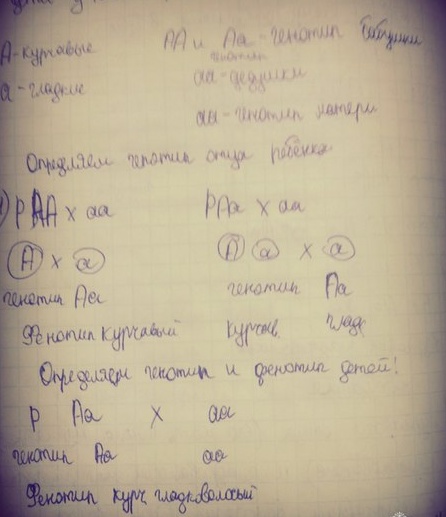 А-курчавые
АА и Аа-генотип бабушки
генотип
а-гладкие
аа-дедушки
аа-генотип матери
Определяем генотип отца ребёнка
1) Р АА х аа
Р Аа х аа
А х а
А а х а
генотип Аа
генотип Аа
Фенотип курчавый
курчав. глад
Определяем генотип и фенотип детей!
Р Аа х аа
генотип Аа аа
Фенотип курч, гладковолосый